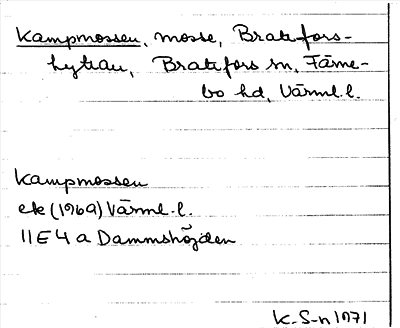 Kampmossen, mosse, Brattfors-
hyttan, Brattfors sn, Färne-
bo hd, Värml.l.
Kampmossen
ek (1969) Värml.l.
11E4a Dammshöjden
K.S-n 1971